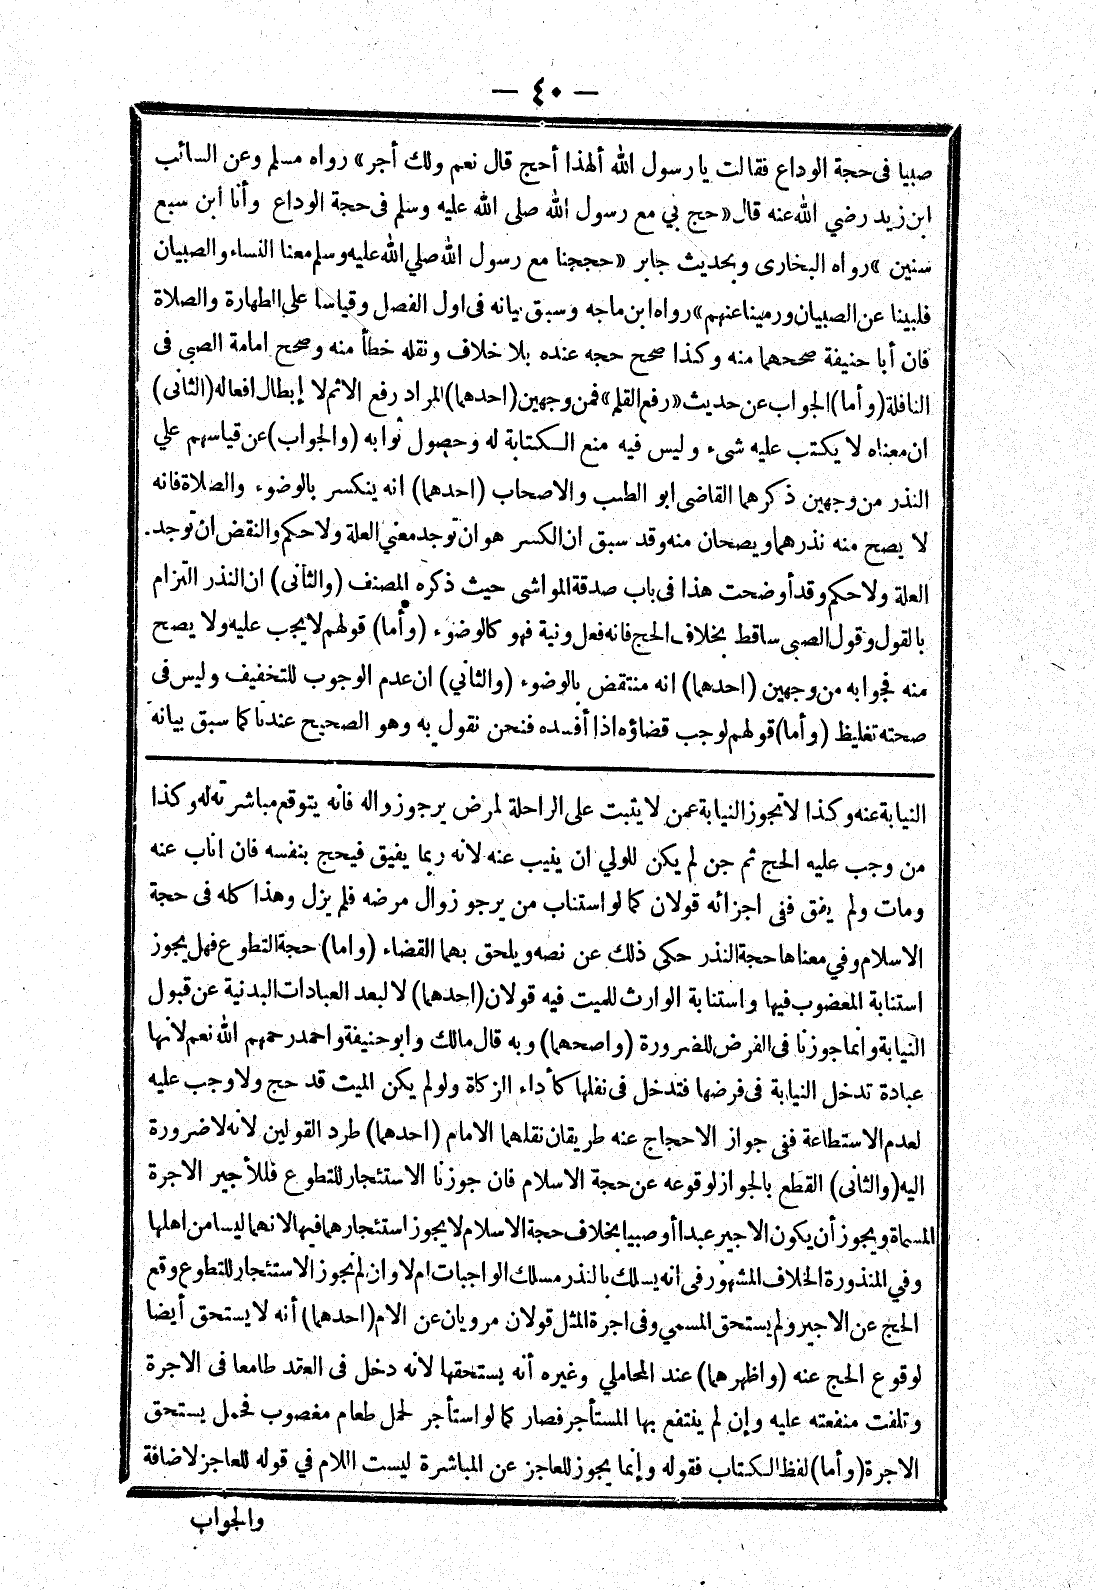 — ٤٠ —
صبيا فى حجة الوداع فقالت يا رسول الله ألهذا أحج قال نعم ولك أجر» رواه مسلم وعن السائب
ابن زيد رضي الله عنه قال «حج بي مع رسول الله صلى الله عليه وسلم فى حجة الوداع وأنا ابن سبع
سنين» رواه البخارى وبحديث جابر «حججنا مع رسول الله صلي الله عليه وسلم معنا النساء والصبيان
فلبينا عن الصبيان ورمينا عنهم» رواه ابن ماجه وسبق بيانه فى اول الفصل وقياسا على الطهارة والصلاة
فان أبا حنيفة صححهما منه وكذا صحح حجه عنده بلا خلاف ونقله خطأ منه وصحح امامة الصبي فى
النافلة (وأما) الجواب عن حديث «رفع القلم» فمن وجهين (احدهما) المراد رفع الاثم لا إبطال افعاله (الثانى)
ان معناه لا يكتب عليه شىء وليس فيه منع الكتابة له وحصول ثوابه (والجواب) عن قياسهم علي
النذر من وجهين ذكرهما القاضى ابو الطيب والاصحاب (احدهما) انه ينكسر بالوضوء والصلاة فانه
لا يصح منه نذرهما ويصحان منه وقد سبق ان الكسر هو ان توجد معني العلة ولا حكم والنقض ان توجد.
العلة ولا حكم وقد أوضحت هذا فى باب صدقة المواشى حيث ذكره المصنف (والثانى) ان النذر التزام
بالقول وقول الصبي ساقط بخلاف الحج فانه فعل ونية فهو كالوضوء (وأما) قولهم لا يجب عليه ولا يصح
منه فجوابه من وجهين (احدهما) انه منتقض بالوضوء (والثاني) ان عدم الوجوب للتخفيف وليس فى
صحته تغليظ (وأما) قولهم لوجب قضاؤه اذا أفسده فنحن نقول به وهو الصحيح عندنا كما سبق بيانه
النيابة عنه وكذا لا تجوز النيابة عمن لا يثبت على الراحلة لمرض يرجو زواله فانه يتوقع مباشرته له وكذا
من وجب عليه الحج ثم جن لم يكن للولي ان ينيب عنه لانه ربما يفيق فيحج بنفسه فان اناب عنه
ومات ولم يفق ففى اجزائه قولان كما لو استناب من يرجو زوال مرضه فلم يزل وهذا كله فى حجة
الاسلام وفي معناها حجة النذر حكي ذلك عن نصه ويلحق بهما القضاء (واما) حجة التطوع فهل يجوز
استنابة المعضوب فيها واستنابة الوارث للميت فيه قولان (احدهما) لا لبعد العبادات البدنية عن قبول
النيابة وانما جوزنا فى الفرض للضرورة (واصحهما) وبه قال مالك وابو حنيفة واحمد رحمهم الله نعم لانها
عبادة تدخل النيابة فى فرضها فتدخل فى نفلها كأداء الزكاة ولو لم يكن الميت قد حج ولا وجب عليه
لعدم الاستطاعة ففى جواز الاحجاج عنه طريقان نقلهما الامام (احدهما) طرد القولين لانه لا ضرورة
اليه (والثانى) القطع بالجواز لوقوعه عن حجة الاسلام فان جوزنا الاستئجار للتطوع فللأجير الاجرة
المسماة ويجوز أن يكون الاجير عبدا أو صبيا بخلاف حجة الاسلام لا يجوز استئجارهما فيها لانهما ليسا من اهلها
وفي المنذورة الخلاف المشهور فى انه يسلك بالنذر مسلك الواجبات ام لا وان لم نجوز الاستئجار للتطوع وقع
الحج عن الاجير ولم يستحق المسمي وفى اجرة المثل قولان مرويان عن الام (احدهما) أنه لا يستحق أيضا
لوقوع الحج عنه (واظهرهما) عند المحاملي وغيره أنه يستحقها لانه دخل فى العقد طامعا فى الاجرة
وتلفت منفعته عليه وإن لم ينتفع بها المستأجر فصار كما لو استأجر لحمل طعام مغصوب فحمل يستحق
الاجرة (وأما) لفظ الكتاب فقوله وإنما يجوز للعاجز عن المباشرة ليست اللام في قوله للعاجز لاضافة
والجواب